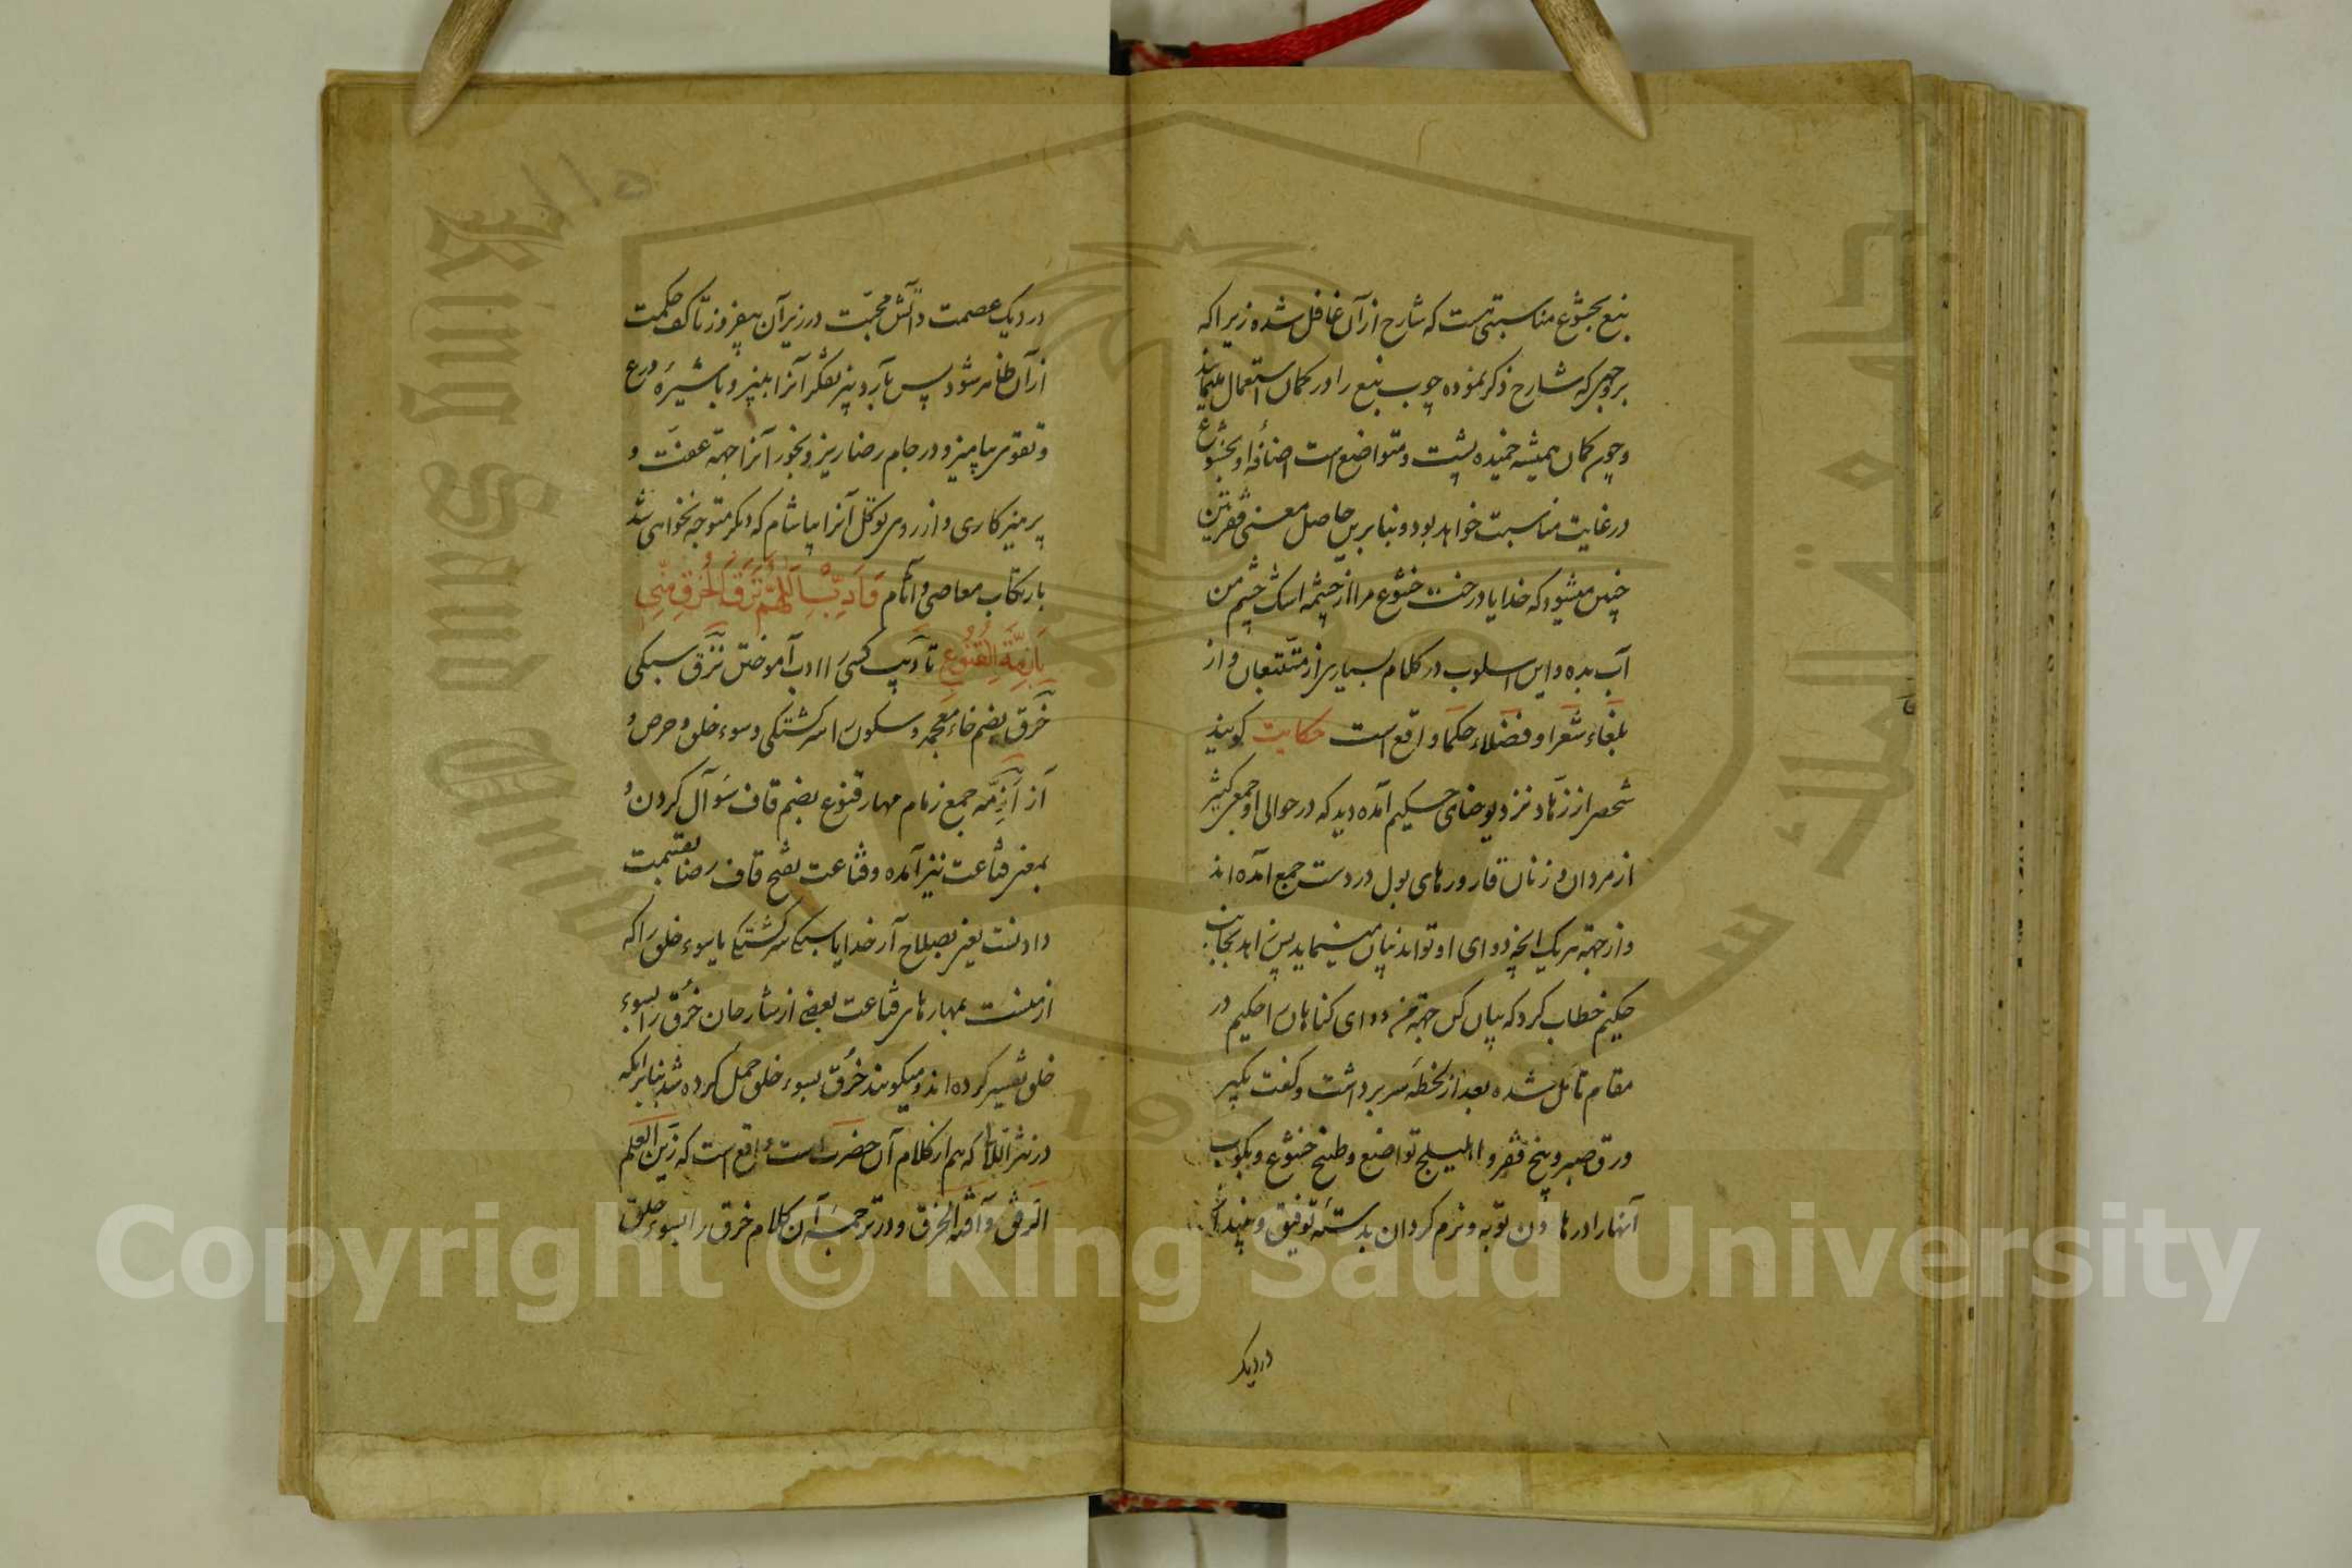 نبع بخشوع مناسبتی هست که شارح از آن غافل شده زیرا که
بر وجهی که شارح ذکر نموده چوب نبع را در کمان استعمال مینمایند
و چون کمان همیشه خمیده پشت و متواضع است اضافهٔ او بخشوع
در غایت مناسبت خواهد بود و بنابرین حاصل معنی فقرتین
چنین میشود که خدایا درخت خشوع مرا از چشمه اشک چشم من
آب بده و این اسلوب در کلام بسیاری از متتبعان و از
بلغاء شعرا و فضلاء حکما واقع است حکایت گویند
شخصی از زهاد نزد یوحنای حکیم آمده دید که در حوالی او جمعی کثیر
از مردان و زنان قاروره‌های بول در دست جمع آمده‌اند
و از جهة هر یک آنچه دوای او تواند بیان مینماید پس زاهد بجانب
حکیم خطاب کرد که بیان کن جهة من دوای گناهان را حکیم در
مقام تأمل شده بعد از لحظه سر برداشت و گفت بگیر
ورق صبر و بیخ فقر و اهلیلج تواضع و طبخ خشوع و بکوب
آنها را در هاون توبه و نرم گردان بدستهٔ توفیق و بینداز
در دیگ
در دیک عصمت و آتش محبت در زیر آن بیفروز تا کف حکمت
از آن ظاهر شود پس بآرد بیز تفکر آنرا ببیز و با شیرهٔ ورع
و تقوی بیامیز و در جام رضا ریز و بخور آنرا جهة عفت و
پرهیزکاری و از روی توکل آنرا بیاشام که دیگر متوجه نخواهی شد
بارتکاب معاصی و آثام وَأَدِّبِ اللَّهُمَّ نَزَقَ الْخُرْقِ مِنِّی
بِأَزِمَّةِ الْقُنُوعِ تأدیب کسی را ادب آموختن نزق سبکی
خرق بضم خاء معجمه و سکون را سرگشتگی و سوء خلق و حرص و
آز ازمّه جمع زمام مهار قنوع بضم قاف سؤال کردن و
بمعنی قناعت نیز آمده و قناعت بفتح قاف رضا بقسمت
دادنست یعنی بصلاح آر خدایا سبکی سرگشتگی یا سوء خلق را که
از منست بمهارهای قناعت بعضی از شارحان خرق را بسوء
خلق تفسیر کرده‌اند و میگویند خرق بسوء خلق حمل کرده شد بنابر آنکه
در نثر اللآلی که هم از کلام آن حضرت است واقع است که زین العلم
الرفق و آفته الخرق و در ترجمهٔ آن کلام خرق را بسوء خلق
Copyright © King Saud University